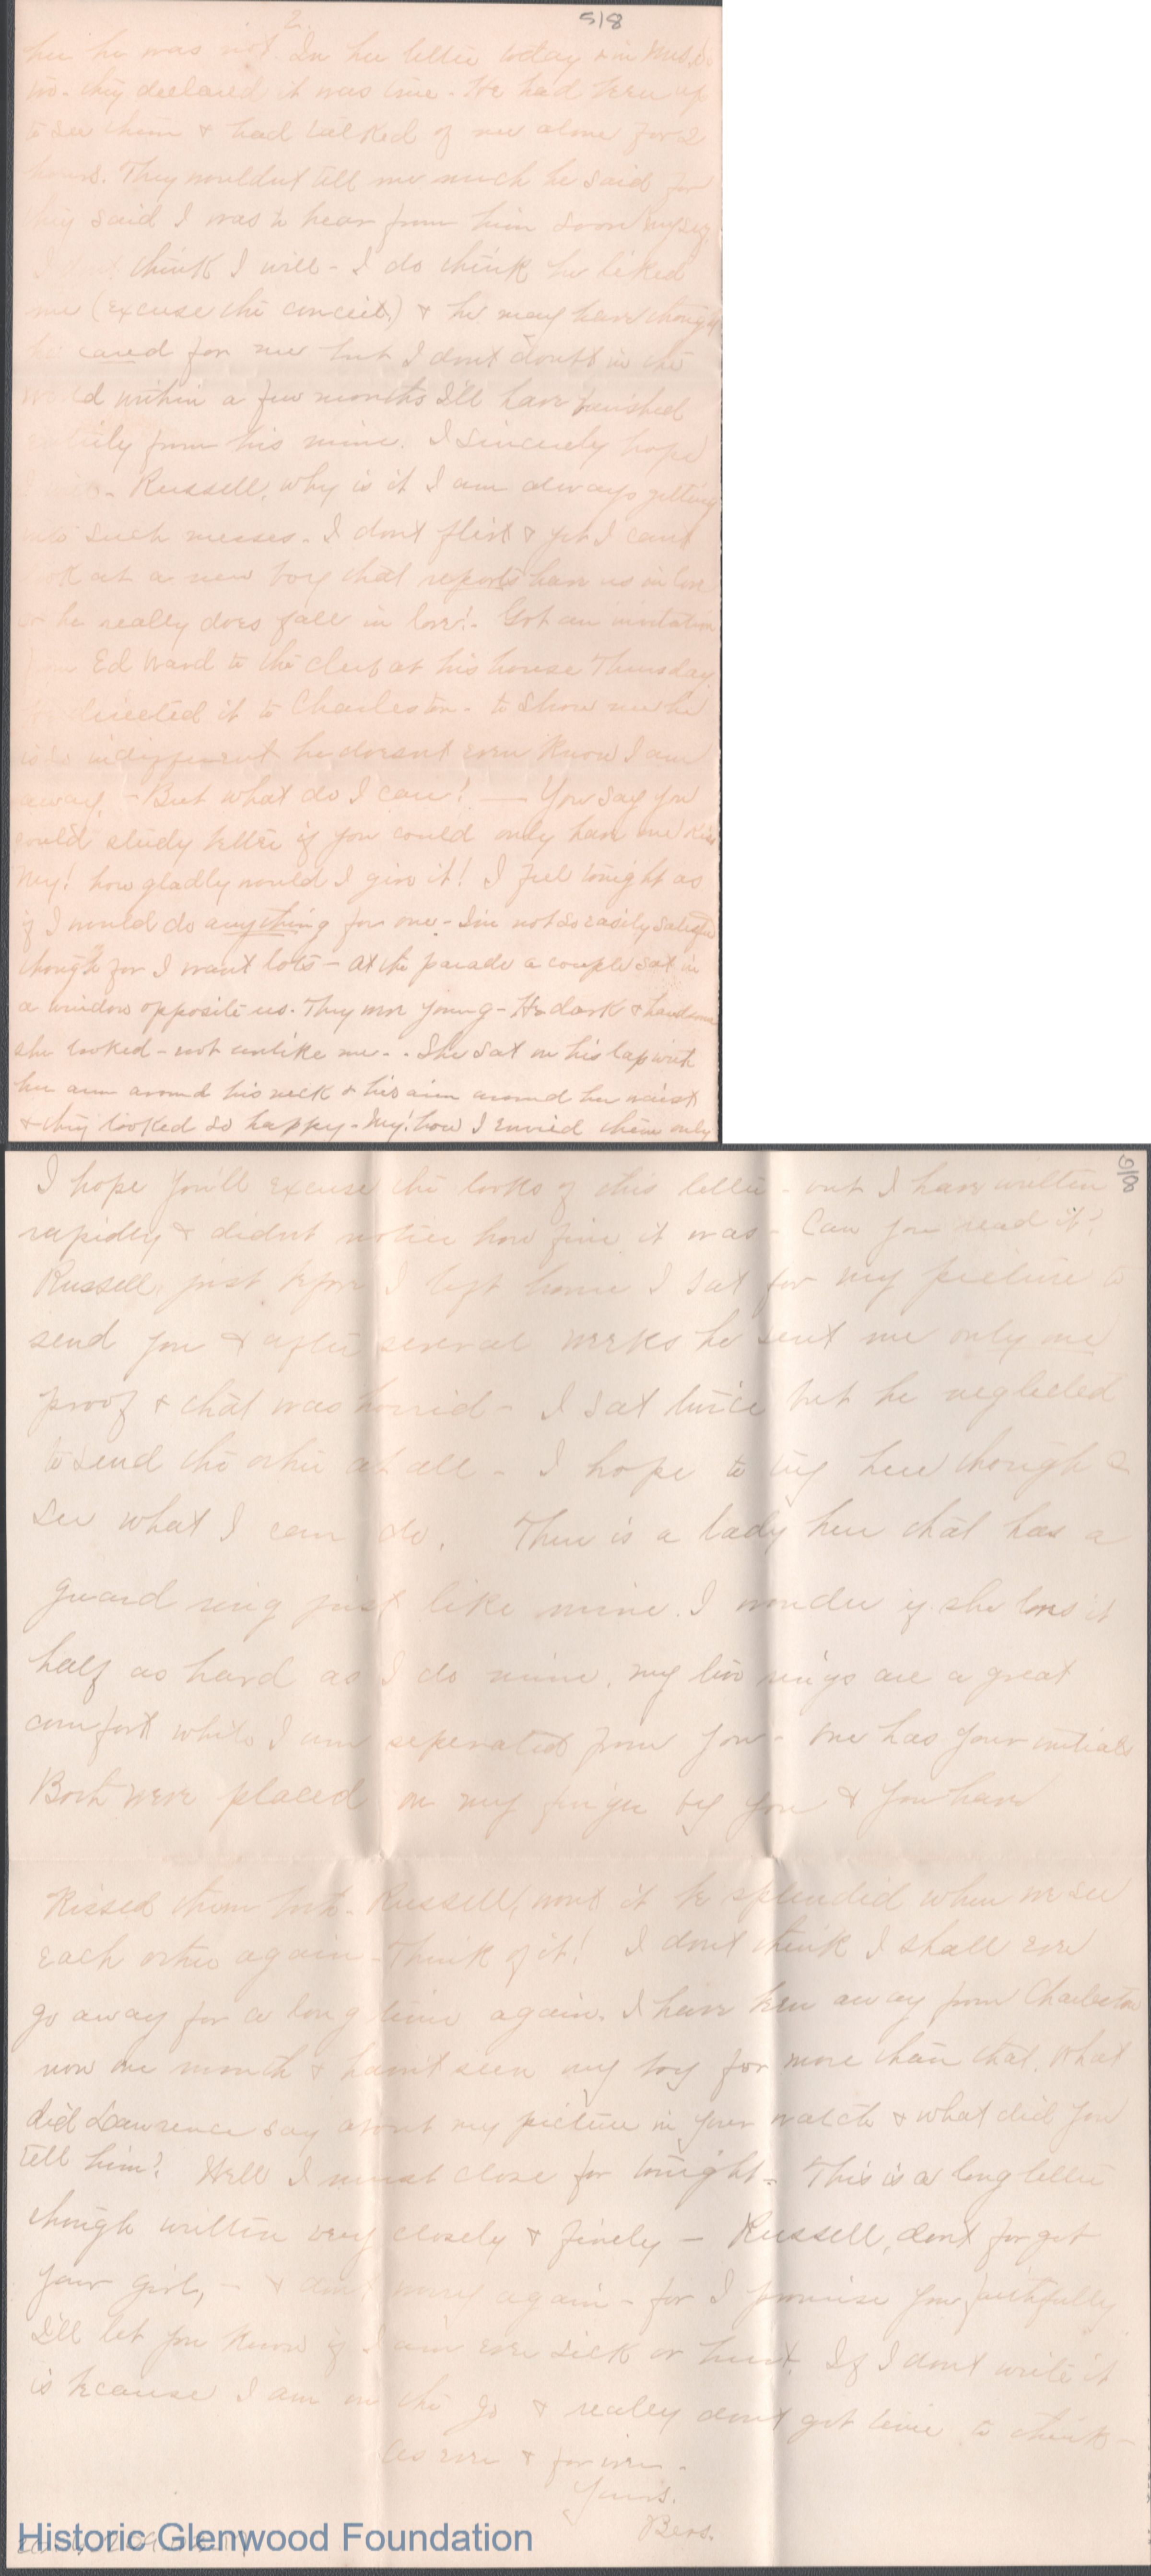 2.
5/8
her he was not. In her letter today & in Mrs.
two - they declared it was true - He had been up
to see them & had talked of me alone for 2
hours. They wouldnt tell me much he said for
they said I was to hear from him soon myself.
I dont think I will - I do think he liked
me (excuse the conceit.) & he may have thought
he cared for me but I dont doubt in the
world within a few months I'll have vanished
entirely from his mind. I sincerely hope
Russell, why is it I am always getting
into such messes - I dont flirt & yet I cant
look at a new boy that reports have us in love
or he really does fall in love! - Got an invitation
from Ed Ward to the club at his house Thursday
He directed it to Charleston - to show me he
is so indifferent he doesnt even know I am
away. - But what do I care! — You say you
could study better if you could only have one kiss
My! how gladly would I give it! I feel tonight as
if I would do anything for one - I'm not so easily satisfied
though for I want lots - At the parade a couple sat in
a window opposite us. They were young - He dark & handsome
she looked - not unlike me - . She sat on his lap with
her arm around his neck & his arm around her waist
& they looked so happy - My! how I envied them only
6/8
I hope you'll excuse the looks of this letter - but I have written
rapidly & didnt notice how fine it was - Can you read it?
Russell, just before I left home I sat for my picture to
send you & after several weeks he sent me only one
proof & that was horrid - I sat twice but he neglected
to send the other at all - I hope to try here though &
see what I can do. There is a lady here that has a
guard ring just like mine. I wonder if she loves it
half as hard as I do mine. my two rings are a great
comfort while I am seperated from you - one has your initials
Both were placed on my finger by you & you have
kissed them both - Russell, wont it be splendid when we see
each other again - Think of it! I dont think I shall ever
go away for a long time again. I have been away from Charleston
now one month & havnt seen my boy for more than that. What
did Lawrence say about my picture in your watch & what did you
tell him? Well I must close for tonight - This is a long letter
though written very closely & finely — Russell, dont forget
your girl, - & dont worry again - for I promise you faithfully
I'll let you know if I am ever sick or hurt. If I dont write it
is because I am on the go & really dont get time to think -
As ever & forever -
Yours.
Bers.
Historic Glenwood Foundation